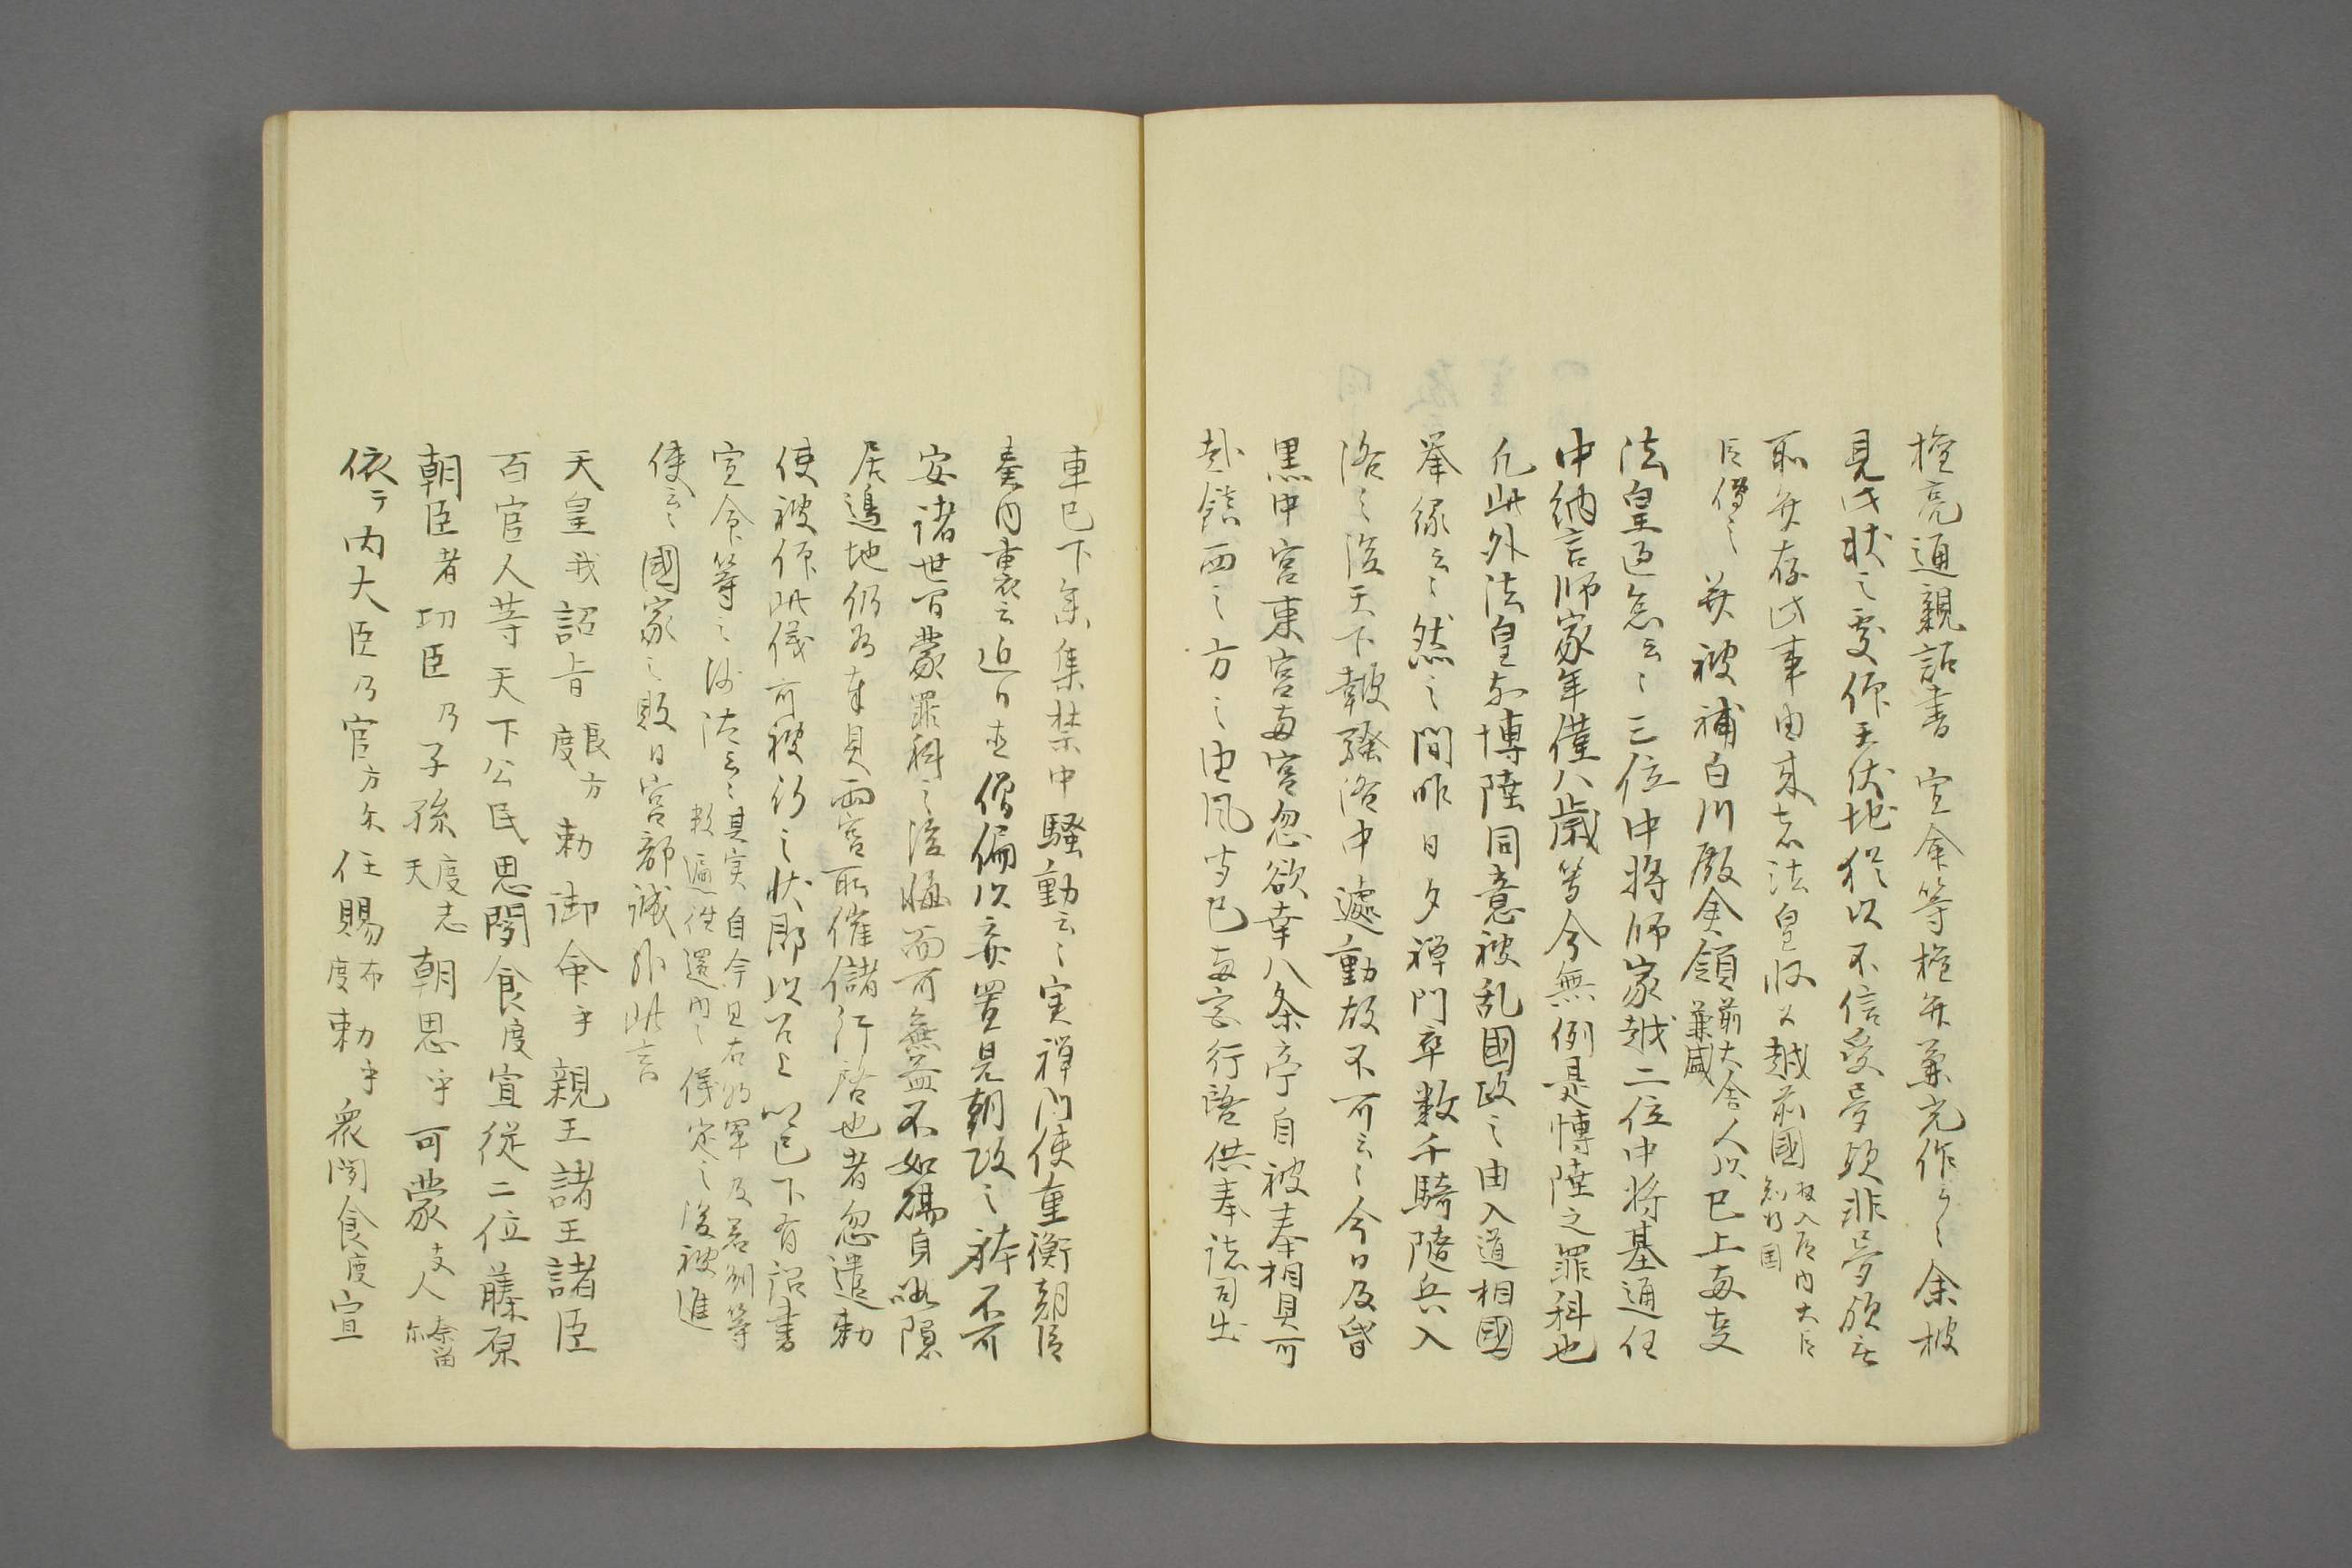 権亮通親詔書宣命等権弁兼光作之〻余披
見此状之處仰天伏地猶以不信受夢歟非夢歟無
取弁存此事由来者法皇収公越前國故入道内大臣知行国
臣僧之并被補白川殿倉領前大舎人頭兼盛以已上両事
法皇過怠云〻三位中将師家越二位中将基通任
中納言師家年僅八歳等今無例是博陸之罪科也
凡此外法皇与博陸同意被乱國政之由入道相國
挙縁云〻然之間昨日夕禅門率数千騎随兵入
洛之後天下鼓騒洛中遽動敢不可云〻今日及昏
黒中宮東宮両宮忽欲幸八条亭自被奉相具可
赴鎮西之方之由風告已両宮行啓供奉諸司出
車已下参集禁中騒動云〻実禅門使重衡朝臣
奏内裏云近日愚僧偏以棄置見朝政之躰不可
安諸世間蒙罪科之後悔而可無益不如賜身暇隠
居邊地仍為奉具両宮所催儲行啓也者忽遣勅
使被仰此儀可被行之状即以召上以已下有詔書
宣命等之沙法云〻其実自今旦右将軍及若州等数遍往還内〻儀定之後被進
使云〻國家之敗日宮部誠非此言
天皇我詔旨度良万勅御命乎親王諸王諸臣
百官人等天下公民思聞食度宣従二位藤原
朝臣者功臣乃子孫度志天朝恩乎可蒙支人奈留尓
依テ内大臣乃官方尓任賜布度勅乎衆聞食度宣